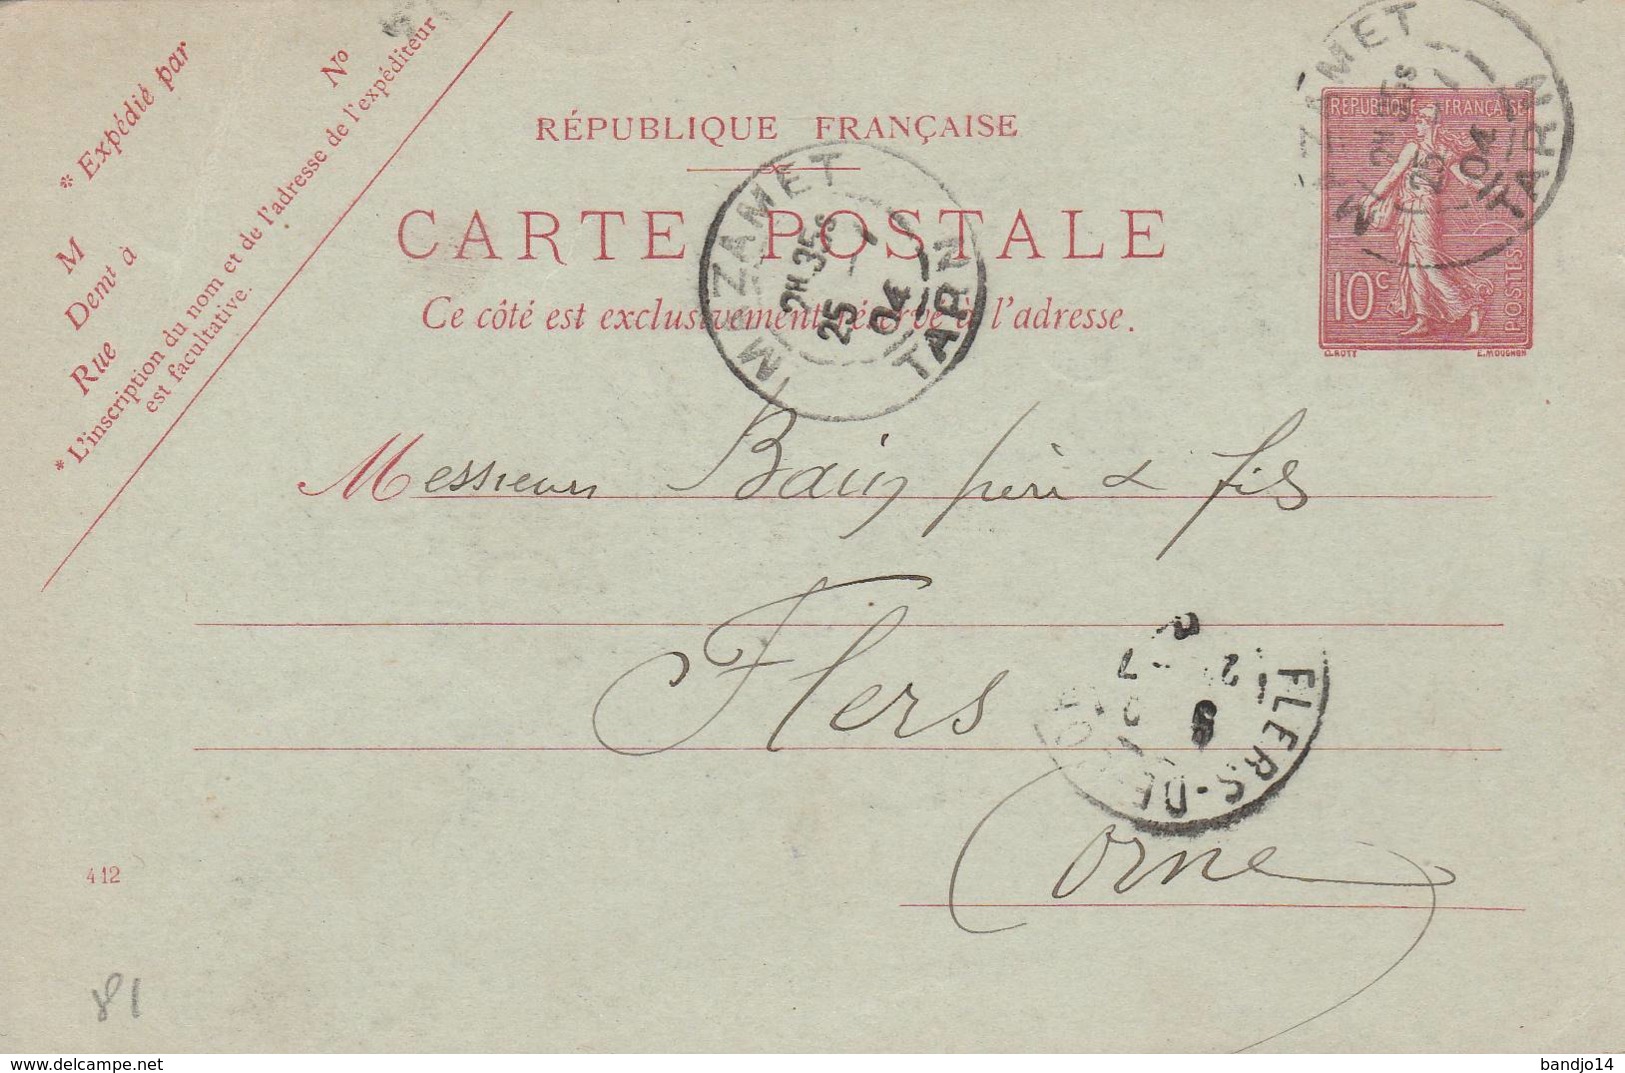 * Expédié par
No
M
Demt à
Rue
* L'inscription du nom et de l'adresse de l'expéditeur
est facultative.
RÉPUBLIQUE FRANÇAISE
CARTE POSTALE
Ce côté est exclusivement réservé à l'adresse.
MAZAMET
2H 35 S
25 1 04
TARN
MAZAMET
2H 35 S
25 1 04
TARN
RÉPUBLIQUE FRANÇAISE
10c
POSTES
O.ROTY E.MOUCHON
Messieurs Bain père & fils
Flers
Orne
FLERS-DE
412
81
www.delcampe.net
bandjo14